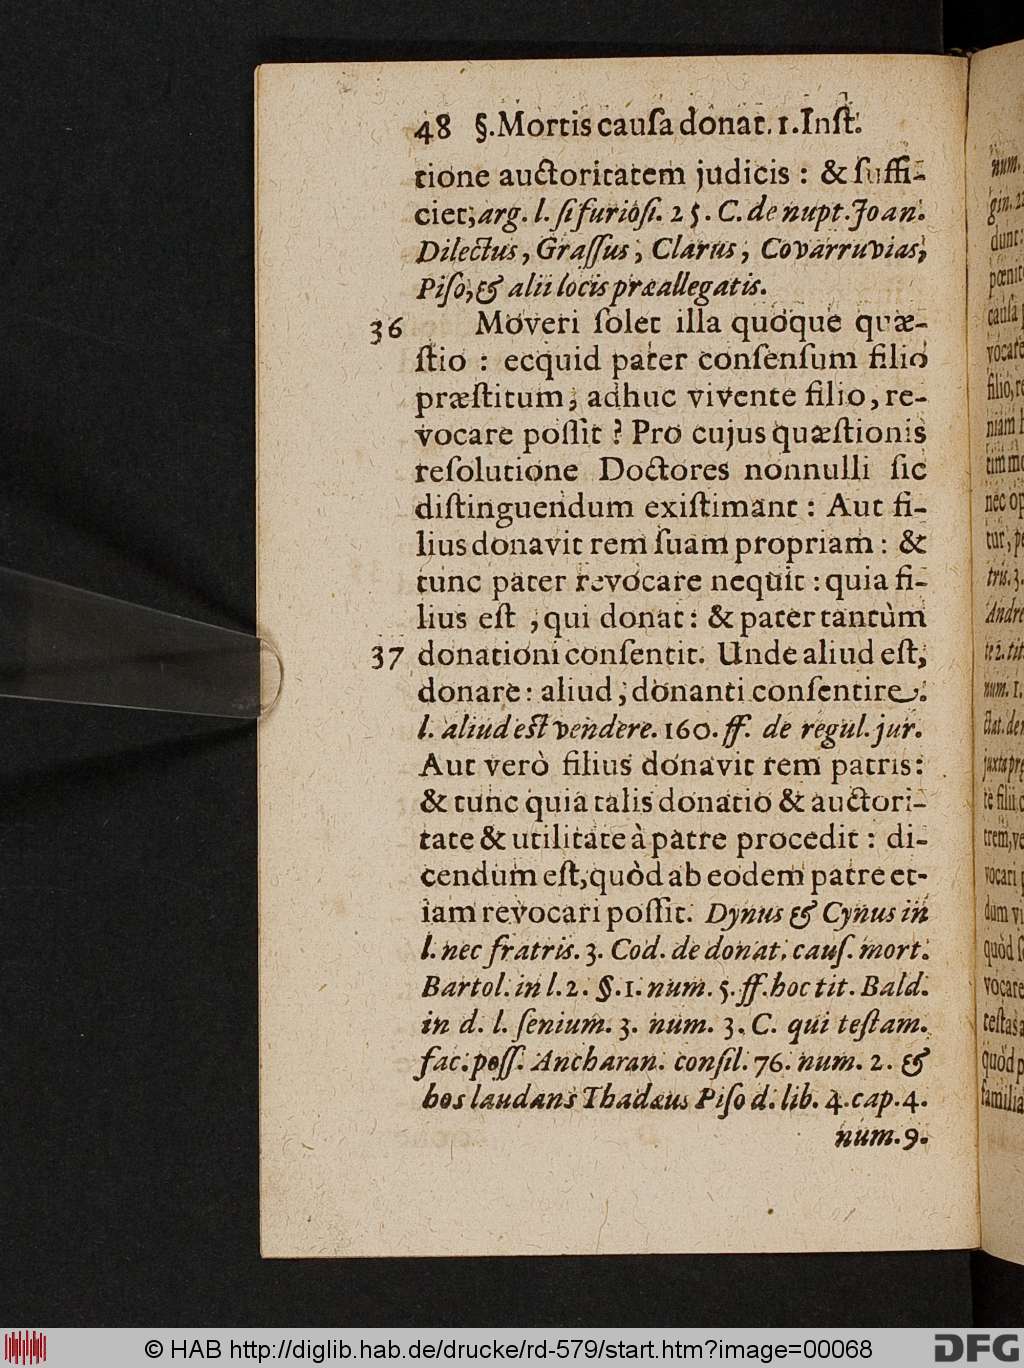 48 §. Mortis cauſa donat. 1. Inſt.
tione auctoritatem judicis : & ſuffi-
ciet, arg. l. ſi furioſi. 25. C. de nupt. Joan.
Dilectus, Graſſus, Clarus, Covarruvias,
Piſo, & alii locis præallegatis.
36 Moveri ſolet illa quoque quæ-
ſtio : ecquid pater conſenſum filio
præſtitum, adhuc vivente filio, re-
vocare poſſit ? Pro cujus quæſtionis
reſolutione Doctores nonnulli ſic
diſtinguendum exiſtimant : Aut fi-
lius donavit rem ſuam propriam : &
tunc pater revocare nequit : quia fi-
lius eſt , qui donat : & pater tantùm
37 donationi conſentit. Unde aliud eſt,
donare : aliud, donanti conſentire.
l. aliud eſt vendere. 160. ff. de regul. jur.
Aut verò filius donavit rem patris :
& tunc quia talis donatio & auctori-
tate & utilitate à patre procedit : di-
cendum eſt, quòd ab eodem patre et-
iam revocari poſſit. Dynus & Cynus in
l. nec fratris. 3. Cod. de donat. cauſ. mort.
Bartol. in l. 2. §. 1. num. 5. ff. hoc tit. Bald.
in d. l. ſenium. 3. num. 3. C. qui teſtam.
fac. poſſ. Ancharan. conſil. 76. num. 2. &
hos laudans Thadæus Piſo d. lib. 4. cap. 4.
num. 9.
© HAB http://diglib.hab.de/drucke/rd-579/start.htm?image=00068
DFG